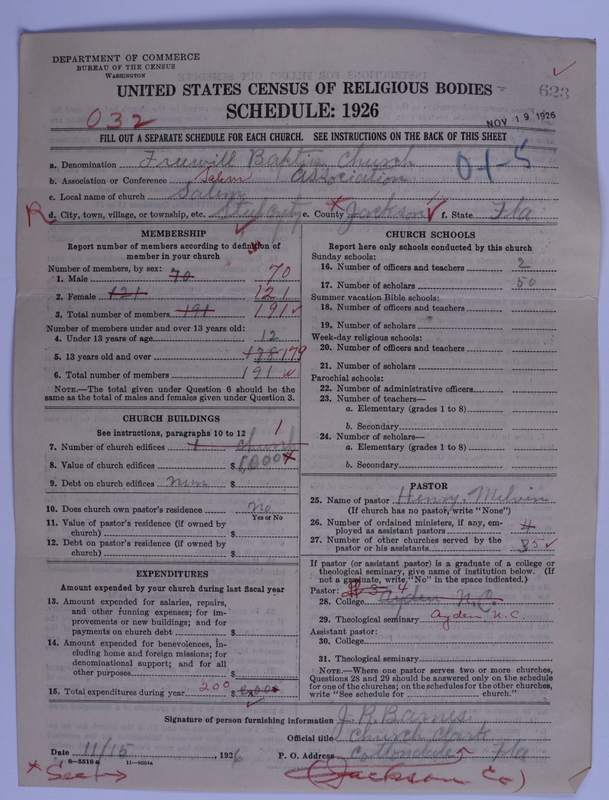 DEPARTMENT OF COMMERCE
BUREAU OF THE CENSUS
WASHINGTON
UNITED STATES CENSUS OF RELIGIOUS BODIES
SCHEDULE: 1926
623
NOV 19 1926
032
FILL OUT A SEPARATE SCHEDULE FOR EACH CHURCH. SEE INSTRUCTIONS ON THE BACK OF THIS SHEET
a. Denomination Freewill Baptist Church
b. Association or Conference Salem Association
c. Local name of church Salem
R d. City, town, village, or township, etc. e. County Jackson f. State Fla
MEMBERSHIP
Report number of members according to definition of member in your church
Number of members, by sex:
1. Male 70 70
2. Female 121 121
3. Total number of members 191 191
Number of members under and over 13 years old:
4. Under 13 years of age 12
5. 13 years old and over 179
6. Total number of members 191
NOTE.—The total given under Question 6 should be the same as the total of males and females given under Question 3.
CHURCH BUILDINGS
See instructions, paragraphs 10 to 12
7. Number of church edifices 1 church 1
8. Value of church edifices $
9. Debt on church edifices $
10. Does church own pastor's residence No
Yes or No
11. Value of pastor's residence (if owned by church) $
12. Debt on pastor's residence (if owned by church) $
EXPENDITURES
Amount expended by your church during last fiscal year
13. Amount expended for salaries, repairs, and other running expenses; for improvements or new buildings; and for payments on church debt $
14. Amount expended for benevolences, including home and foreign missions; for denominational support; and for all other purposes $
15. Total expenditures during year 200 $
CHURCH SCHOOLS
Report here only schools conducted by this church
Sunday schools:
16. Number of officers and teachers 2
17. Number of scholars 50
Summer vacation Bible schools:
18. Number of officers and teachers
19. Number of scholars
Week-day religious schools:
20. Number of officers and teachers
21. Number of scholars
Parochial schools:
22. Number of administrative officers
23. Number of teachers—
a. Elementary (grades 1 to 8)
b. Secondary
24. Number of scholars—
a. Elementary (grades 1 to 8)
b. Secondary
PASTOR
25. Name of pastor Henry Melvin
(If church has no pastor, write "None")
26. Number of ordained ministers, if any, employed as assistant pastors
27. Number of other churches served by the pastor or his assistants
If pastor (or assistant pastor) is a graduate of a college or theological seminary, give name of institution below. (If not a graduate, write "No" in the space indicated.)
Pastor:
28. College Ayden N.C.
29. Theological seminary Ayden N.C.
Assistant pastor:
30. College
31. Theological seminary
NOTE.—Where one pastor serves two or more churches, Questions 28 and 29 should be answered only on the schedule for one of the churches; on the schedules for the other churches, write "See schedule for church."
Signature of person furnishing information J. R. Barnes
Official title Church Clerk
Date 11/15, 1926 P. O. Address Cottondale Fla
8—5518a 11—8554a
* See → (Jackson Co)